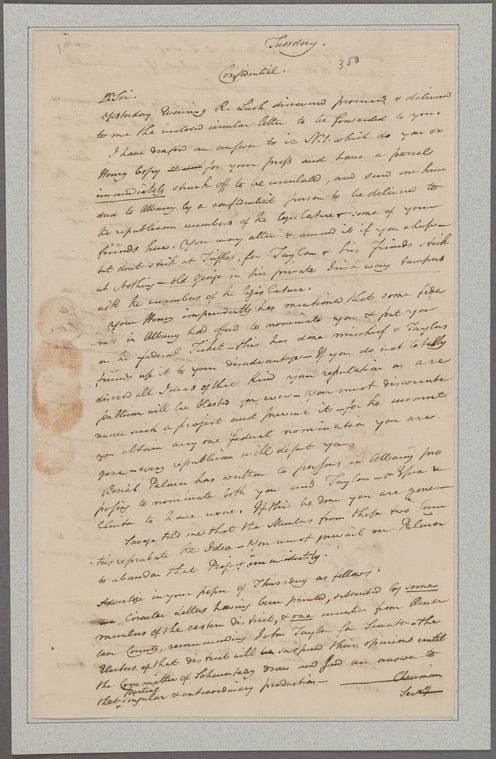 Tuesday.
350
Confidential.
Dr Sir.
Yesterday Evening R. Lush discovered & delivered
to me the inclosed circular letter to be forwarded to you.
I have drafted an answer to it N. 1. which do you or
Henry Copy for your press and have a parcel
immediately struck off to be circulated, and send one hun
dred to Albany by a confidential person to be delivered to
the republican members of the legislature & some of your
friends here. (You may alter & amend it if you chuse—
but dont stick at Trifles, for Taylor & his Friends stick
at Nothing — old George in his private Irish way tampers
with the members of the legislature.
Your Henry imprudently has mentioned that some fede
rals in Albany had offerd to nominate you & put you
on the federal Ticket — this has done mischief & Taylors
friends use it to your disadvantage — If you do not totally
discard all Ideas of that Kind your reputation as a re
publican will be blasted for ever — you must discounte
nance such a project and prevent it — for the moment
you obtain any one federal nomination you are
gone — every republican will desert you.
Beriah Palmer has written to persons in Albany pro
posing to nominate both you and Taylor — &
Clinton to have none. If this be done you are gone —
Savage told me that the Members from these two Coun
ties reprobate the Idea — You must prevail on Palmer
to abandon that Project immediately.
Advertize in your paper of Thursday as follows.
Circular Letters having been printed, subscribed by some
members of the eastern district, & one member from
County, recommending John Taylor for Senator — the
Electors of that district will suspend their opinions until
the Committee of Schenectady draw and find an answer to
that partial singular & extraordinary production —
Chairman
Secry